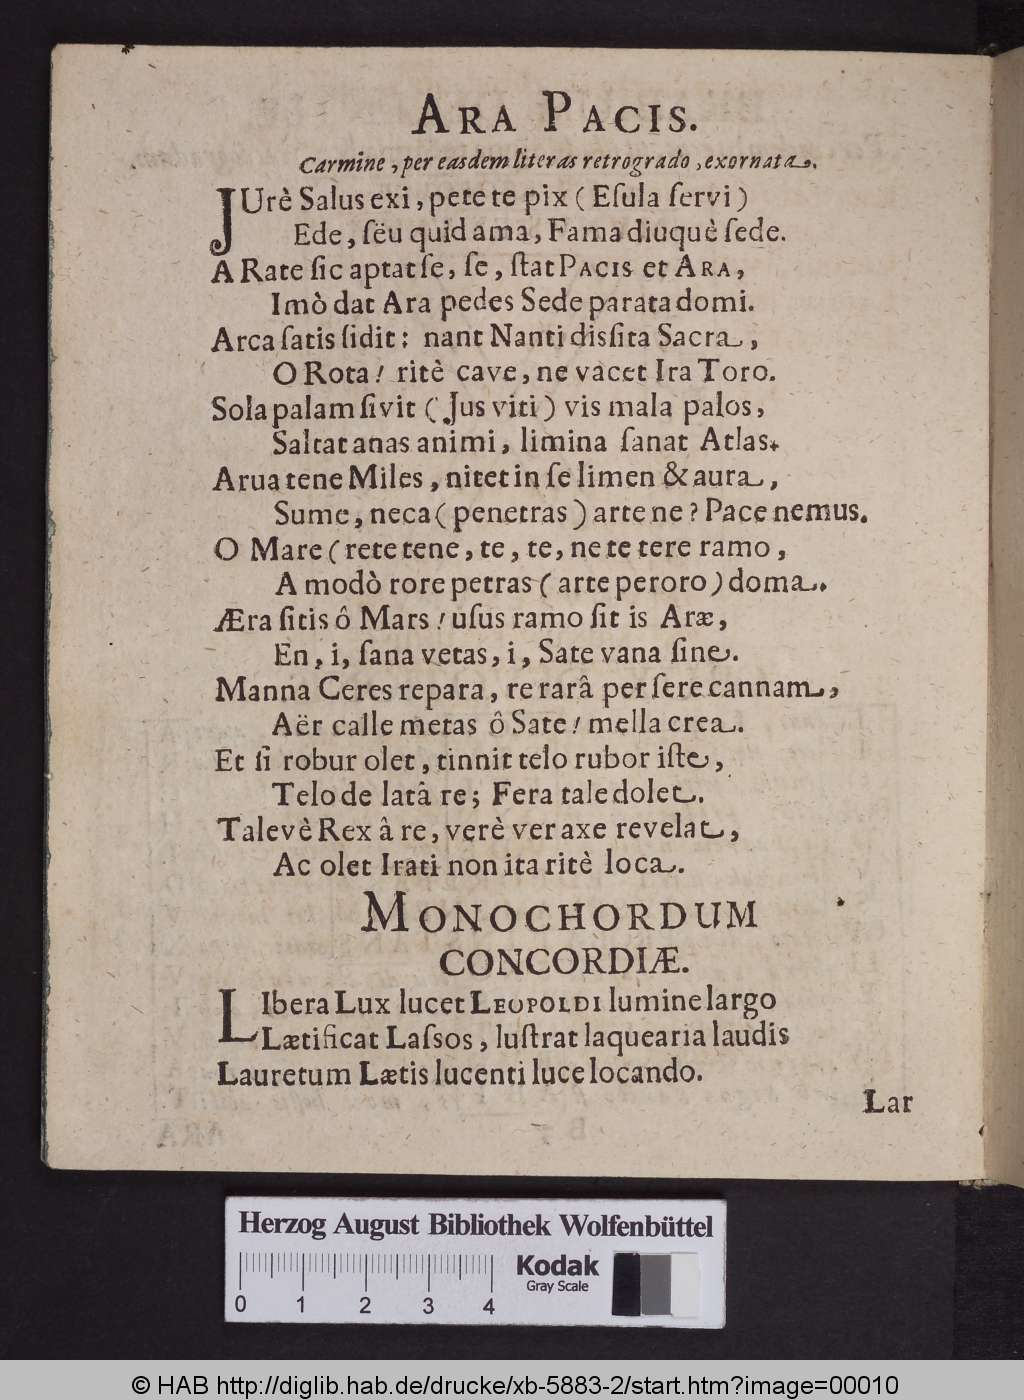 ARA PACIS.
Carmine, per easdem literas retrogrado, exornata.
JUrè Salus exi, pete te pix (Eſula ſervi)
Ede, ſëu quid ama, Fama diuquè ſede.
A Rate ſic aptat ſe, ſe, ſtat PACIS et ARA,
Imò dat Ara pedes Sede parata domi.
Arca ſatis ſidit: nant Nanti disſita Sacra,
O Rota! ritè cave, ne vacet Ira Toro.
Sola palam ſivit (Jus viti) vis mala palos,
Saltat anas animi, limina ſanat Atlas.
Arua tene Miles, nitet in ſe limen & aura,
Sume, neca (penetras) arte ne? Pace nemus.
O Mare (rete tene, te, te, ne te tere ramo,
A modò rore petras (arte peroro) doma.
Æra ſitis ô Mars! uſus ramo ſit is Aræ,
En, i, ſana vetas, i, Sate vana ſine.
Manna Ceres repara, re rarâ per ſere cannam,
Aër calle metas ô Sate! mella crea.
Et ſi robur olet, tinnit telo rubor iſte,
Telo de latâ re; Fera tale dolet.
Talevè Rex â re, verè ver axe revelat,
Ac olet Irati non ita ritè loca.
MONOCHORDUM
CONCORDIÆ.
LIbera Lux lucet LEUPOLDI lumine largo
Lætificat Laſsos, luſtrat laquearia laudis
Lauretum Lætis lucenti luce locando.
Lar
Herzog August Bibliothek Wolfenbüttel
Kodak
Gray Scale
0 1 2 3 4
© HAB http://diglib.hab.de/drucke/xb-5883-2/start.htm?image=00010